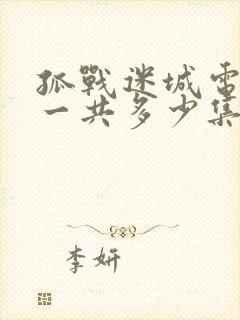 孤戰迷城電
一共多少集
李妍